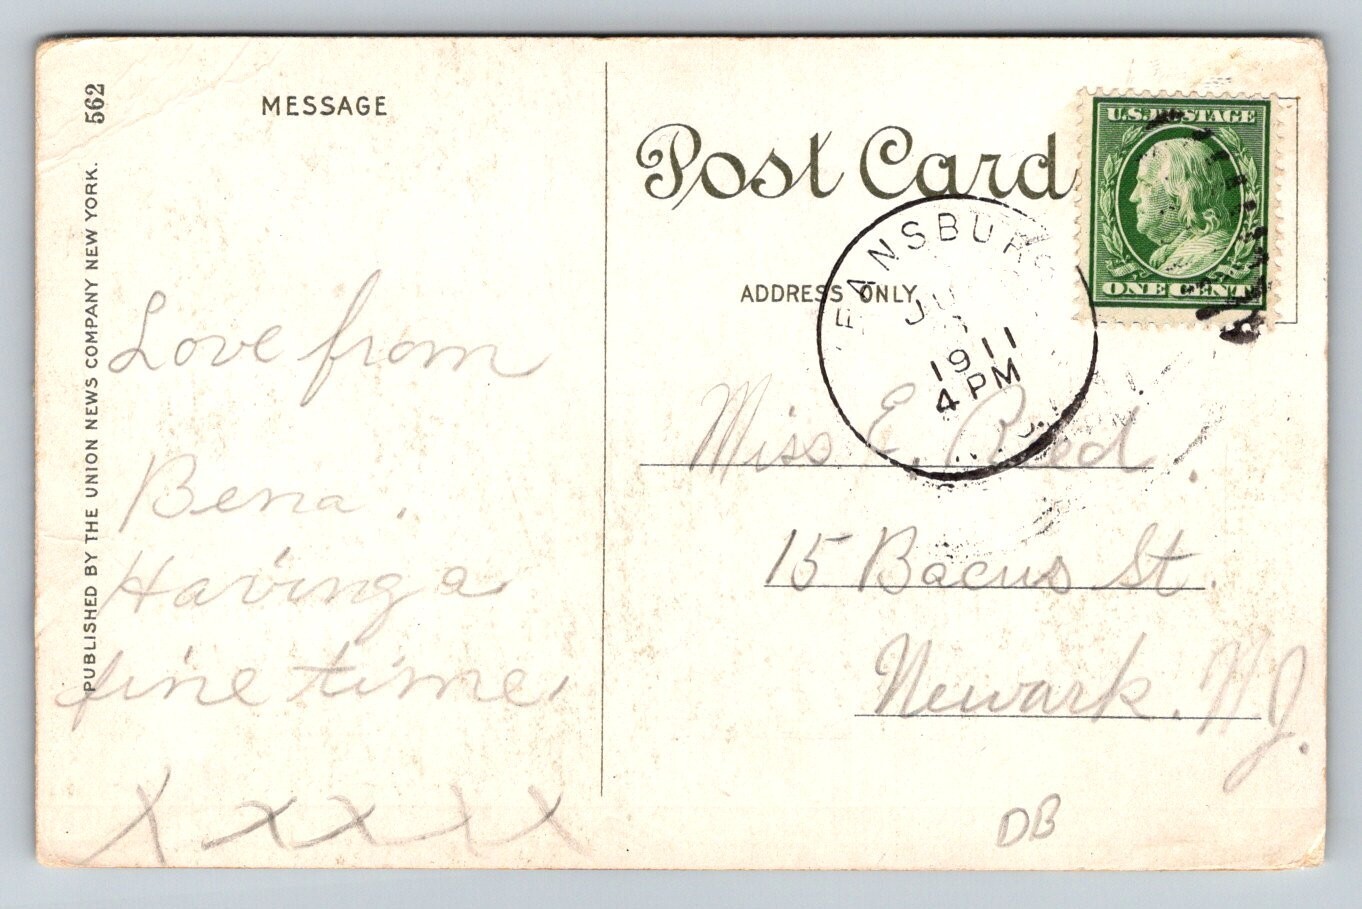 562
PUBLISHED BY THE UNION NEWS COMPANY NEW YORK.
MESSAGE
Love from
Bena.
Having a
fine time,
X X X X X
Post Card
ADDRESS ONLY
U.S. POSTAGE
ONE CENT
EANSBURG
1911
4 PM
Miss E. Reed,
15 Bacus St.
Newark. N J.
DB